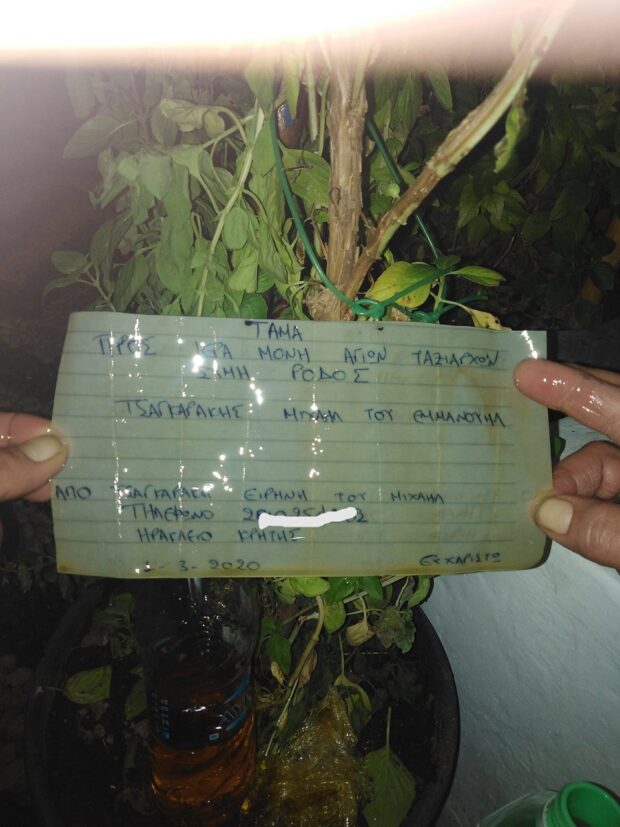 ΤΑΜΑ
ΠΡΟΣ ΙΕΡΑ ΜΟΝΗ ΑΓΙΩΝ ΤΑΞΙΑΡΧΩΝ
ΣΑΜΗ ΡΟΔΟΣ
ΤΣΑΓΚΑΡΑΚΗΣ ΜΙΧΑΗΛ ΤΟΥ ΕΜΜΑΝΟΥΗΛ
ΑΠΟ ΤΣΑΓΚΑΡΑΚΗ ΕΙΡΗΝΗ ΤΟΥ ΜΙΧΑΗΛ
ΤΗΛΕΦΩΝΟ
ΗΡΑΚΛΕΙΟ ΚΡΗΤΗΣ
-3-2020 ΕΥΧΑΡΙΣΤΩ